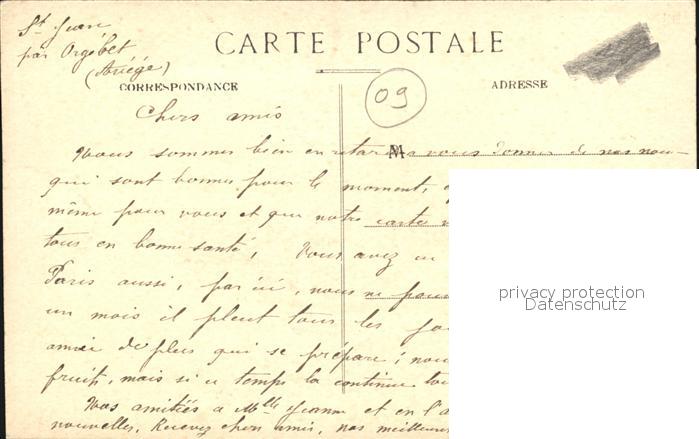 St Jean
par Orgibet
(Ariége)
CARTE POSTALE
09
CORRESPONDANCE
ADRESSE
Chers amis
Nous sommes bien en retard a vous donner de nos nou-
M
qui sont bonnes pour le moment,
même pour vous et que notre carte
tous en bonne santé, Vous avez eu
Paris aussi, par ici, nous ne pou
un mois il pleut tous les jou
année de plus qui se prépare; nou
fruits, mais si ce temps la continue
Nos amitiés a Mlle Jeanne et en l'a
nouvelles, Recevez chers amis, nos meilleur
privacy protection
Datenschutz